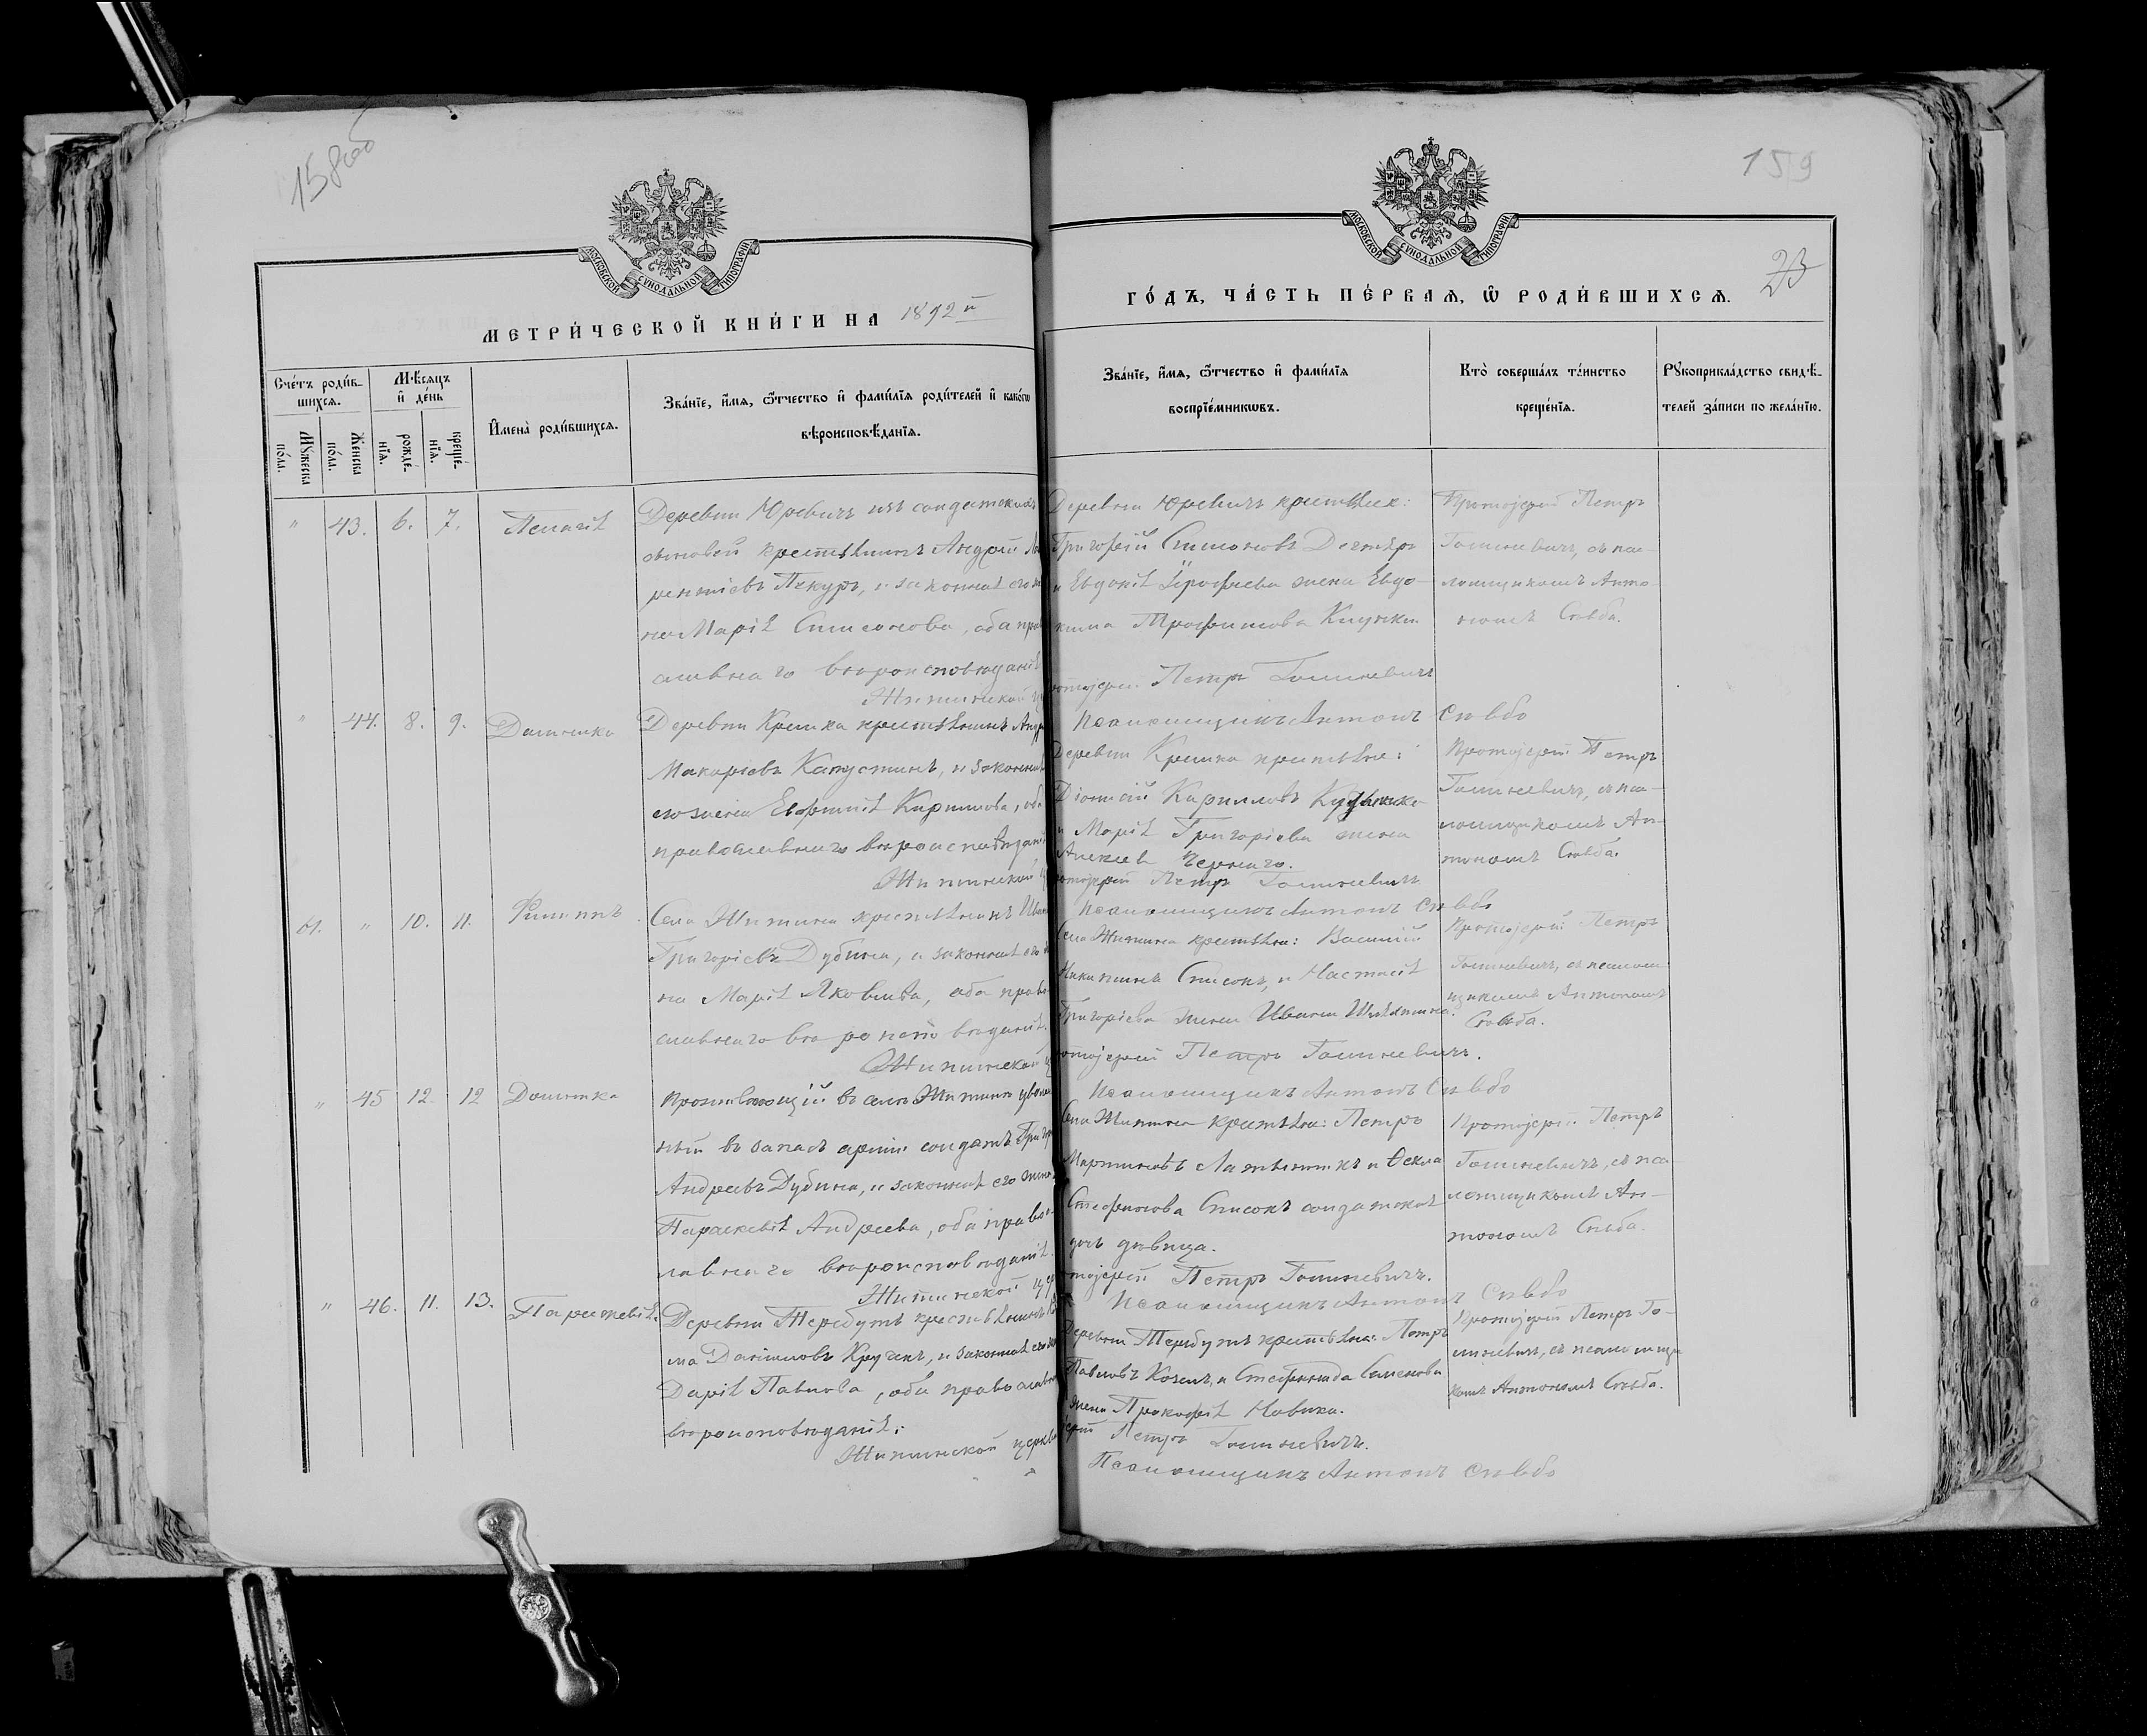 158 об
159
23
МОСКОВСКОЙ СѴНОДАЛЬНОЙ ТИПОГРАФІИ
МОСКОВСКОЙ СѴНОДАЛЬНОЙ ТИПОГРАФІИ
МЕТРИ́ЧЕСКОЙ КНИ́ГИ НА 1892 й
ГО́ДЪ, ЧА́СТЬ ПЕ́РВАѦ, Ѡ҆ РОДИ́ВШИХСѦ.
Сче́тъ роди́в-
шихсѧ.
Мꙋ́жеска по́ла.
Же́нска по́ла.
Мѣ́сѧцъ и҆ де́нь
рожде́-нїѧ.
креще́-нїѧ.
И҆мена̀ роди́вшихсѧ.
Зва́нїе, и҆́мѧ, ѻ҆́тчество и҆ фами́лїѧ роди́телей и҆ како́гѡ
вѣроисповѣ́данїѧ.
Зва́нїе, и҆́мѧ, ѻ҆́тчество и҆ фами́лїѧ
воспрїе́мникѡвъ.
Кто̀ соверша́лъ та́инство
креще́нїѧ.
Рꙋкоприкла́дство свидѣ́-
телей за́писи по жела́нїю.
" 43. 6. 7. Пелагія
Деревни Юревичъ изъ солдатскихъ
сыновей крестьянинъ Андрей Ла
рентіевъ Пекуръ, и законная его же
на Марія Симеонова, оба прав
славнаго вѣроисповѣданія
Житинской ц
Деревни Юревичъ крестьян:
Григорій Симоновъ Дегтяръ
и Евдокія Ерофеева жена Евдо-
кима Трофимова
Протоіерей Петръ
Голиневичъ, съ пса-
ломщикомъ Анто-
номъ Сввба.
отоіерей Петръ Голиневичъ
Псаломщикъ Антонъ
" 44. 8. 9. Домника
Деревни Крюка крестьянинъ Андр
Макаріевъ Капустинъ, и законная
его жена Евфимія Кириллова, оба
православнаго вѣроисповѣданія
Житинской ц
Деревни Крюка крестьян:
Діонисій Кирилловъ
и Марія Григоріева жена
Алексѣя Чернаго.
Протоіерей Петръ
Голиневичъ, съ пса-
ломщикомъ Ан-
тономъ
отоіерей Петръ Голиневичъ.
Псаломщикъ Антонъ
4. " 10. 11. Филиппъ
Села Житина крестьянинъ Иван
Григоріевъ Дубина, и законная его же
на Марія Яковлева, оба право
славнаго вѣроисповѣданія.
Житинской ц
Села Житина крестьян: Василій
Никитинъ Списокъ, и Настасія
Григоріева жена Ивана
Протоіерей Петръ
Голиневичъ, съ псалом
щикомъ Антономъ
отоіерей Петръ Голиневичъ.
Псаломщикъ Антонъ
" 45 12. 12 Домника
Проживающій въ селѣ Житинѣ уволен
ный въ запасъ арміи солдатъ Григор
Андреевъ Дубина, и законная его жена
Параскевія Андреева, оба правос
лавнаго вѣроисповѣданія.
Житинской цер
Села Житина крестьян: Петръ
Мартиновъ и Ѳекла
Стефанова Списокъ солдатская
дочь дѣвица.
Протоіерей Петръ
Голиневичъ, съ пса-
ломщикомъ Ан-
тономъ
отоіерей Петръ Голиневичъ.
Псаломщикъ Антонъ
" 46. 11. 13. Параскевія.
Деревни Теребутъ крестьянинъ
ма Даніиловъ и законная его жена
Дарія Павлова, оба православнаго
вѣроисповѣданія.
Житинской церкви
Деревни Теребутъ крестьян: Петръ
Павловъ Козелъ, и Стефанида Семенова
жена Прокофія Новика.
Протоіерей Петръ Го-
линевичъ, съ псаломщи
комъ Антономъ
ерей Петръ Голиневичъ.
Псаломщикъ Антонъ